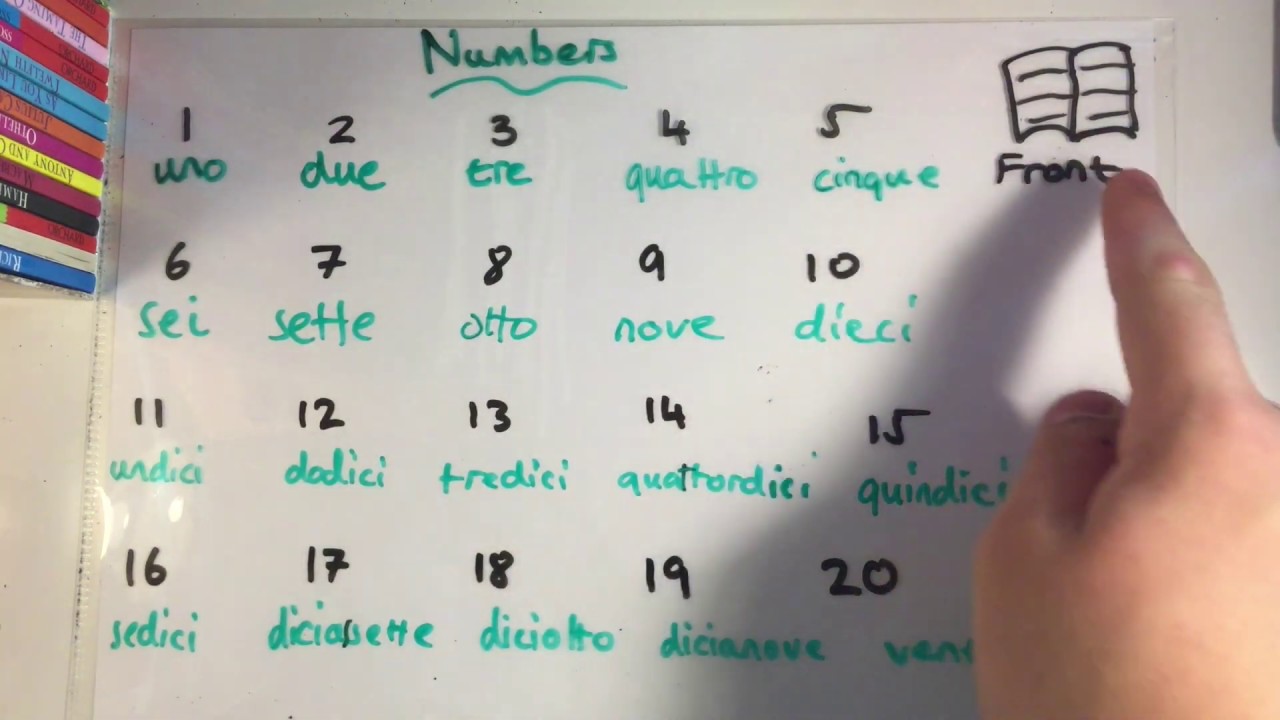 Numbers
1 2 3 4 5
uno due tre quattro cinque
Front
6 7 8 9 10
sei sette otto nove dieci
11 12 13 14 15
undici dodici tredici quattordici quindici
16 17 18 19 20
sedici diciassette diciotto dicianove
THE TAMING O
TWELFTH N
AS YOU LIK
JULIUS C
OTHELL
ANTONY AND C
HAML
RICH